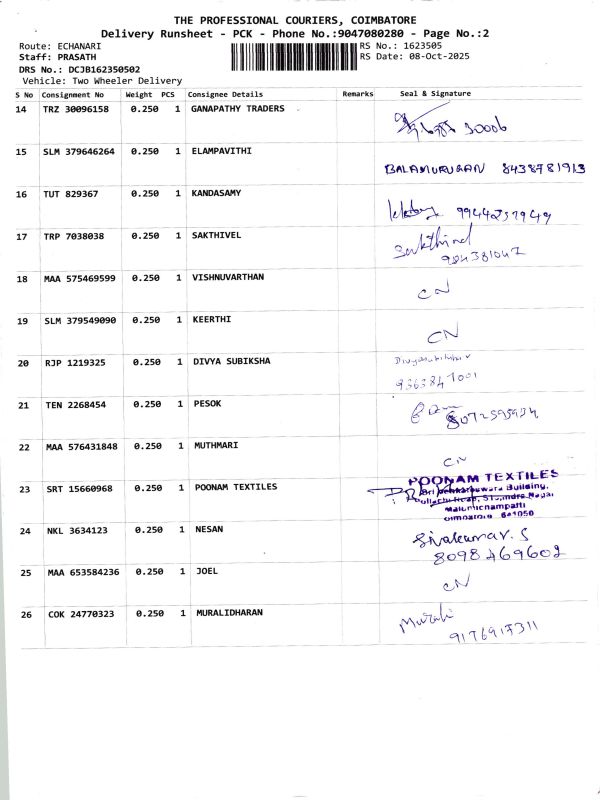 THE PROFESSIONAL COURIERS, COIMBATORE
Delivery Runsheet - PCK - Phone No.:9047080280 - Page No.:2
Route: ECHANARI
RS No.: 1623505
Staff: PRASATH
RS Date: 08-Oct-2025
DRS No.: DCJB162350502
Vehicle: Two Wheeler Delivery
S No Consignment No Weight PCS Consignee Details Remarks Seal & Signature
14 TRZ 30096158 0.250 1 GANAPATHY TRADERS
30006
15 SLM 379646264 0.250 1 ELAMPAVITHI
BALAMURUGAN 8438781913
16 TUT 829367 0.250 1 KANDASAMY
9944257949
17 TRP 7038038 0.250 1 SAKTHIVEL
Sakthivel
18 MAA 575469599 0.250 1 VISHNUVARTHAN
CN
19 SLM 379549090 0.250 1 KEERTHI
CN
20 RJP 1219325 0.250 1 DIVYA SUBIKSHA
9363847001
21 TEN 2268454 0.250 1 PESOK
22 MAA 576431848 0.250 1 MUTHMARI
CN
23 SRT 15660968 0.250 1 POONAM TEXTILES
POONAM TEXTILES
Building,
Malumichampatti
641050
24 NKL 3634123 0.250 1 NESAN
Sivakumar. S
8098469602
25 MAA 653584236 0.250 1 JOEL
CN
26 COK 24770323 0.250 1 MURALIDHARAN
Murali
9176917311